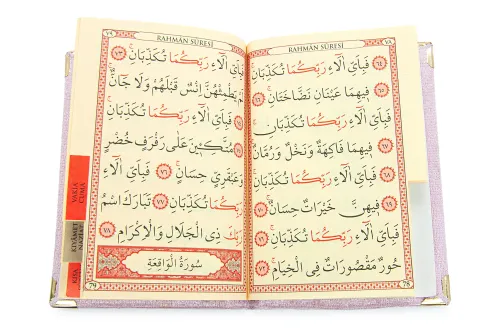 RAHMÂN SÛRESİ
٧٨
فَبِاَيِّ اٰلَٓاءِ رَبِّكُمَا تُكَذِّبَانِ ﴿٦٥﴾
فِيهِمَا عَيْنَانِ نَضَّاخَتَانِ ﴿٦٦﴾
فَبِاَيِّ اٰلَٓاءِ رَبِّكُمَا تُكَذِّبَانِ
فِيهِمَا فَاكِهَةٌ وَنَخْلٌ وَرُمَّانٌ
فَبِاَيِّ اٰلَٓاءِ رَبِّكُمَا تُكَذِّبَانِ
فِيهِنَّ خَيْرَاتٌ حِسَانٌ
فَبِاَيِّ اٰلَٓاءِ رَبِّكُمَا تُكَذِّبَانِ
حُورٌ مَقْصُورَاتٌ فِي الْخِيَامِ
78
٧٩
RAHMÂN SÛRESİ
فَبِاَيِّ اٰلَٓاءِ رَبِّكُمَا تُكَذِّبَانِ ﴿٧٣﴾
لَمْ يَطْمِثْهُنَّ اِنْسٌ قَبْلَهُمْ وَلَا جَٓانٌّ
فَبِاَيِّ اٰلَٓاءِ رَبِّكُمَا تُكَذِّبَانِ
مُتَّكِـِٔينَ عَلٰى رَفْرَفٍ خُضْرٍ
وَعَبْقَرِيٍّ حِسَانٍ ﴿٧٦﴾ فَبِاَيِّ اٰلَٓاءِ
رَبِّكُمَا تُكَذِّبَانِ ﴿٧٧﴾ تَبَارَكَ اسْمُ
رَبِّكَ ذِي الْجَلَالِ وَالْاِكْرَامِ ﴿٧٨﴾
سُورَةُ الْوَاقِعَةِ
79
VAKIA
CUMA
KIYAMET